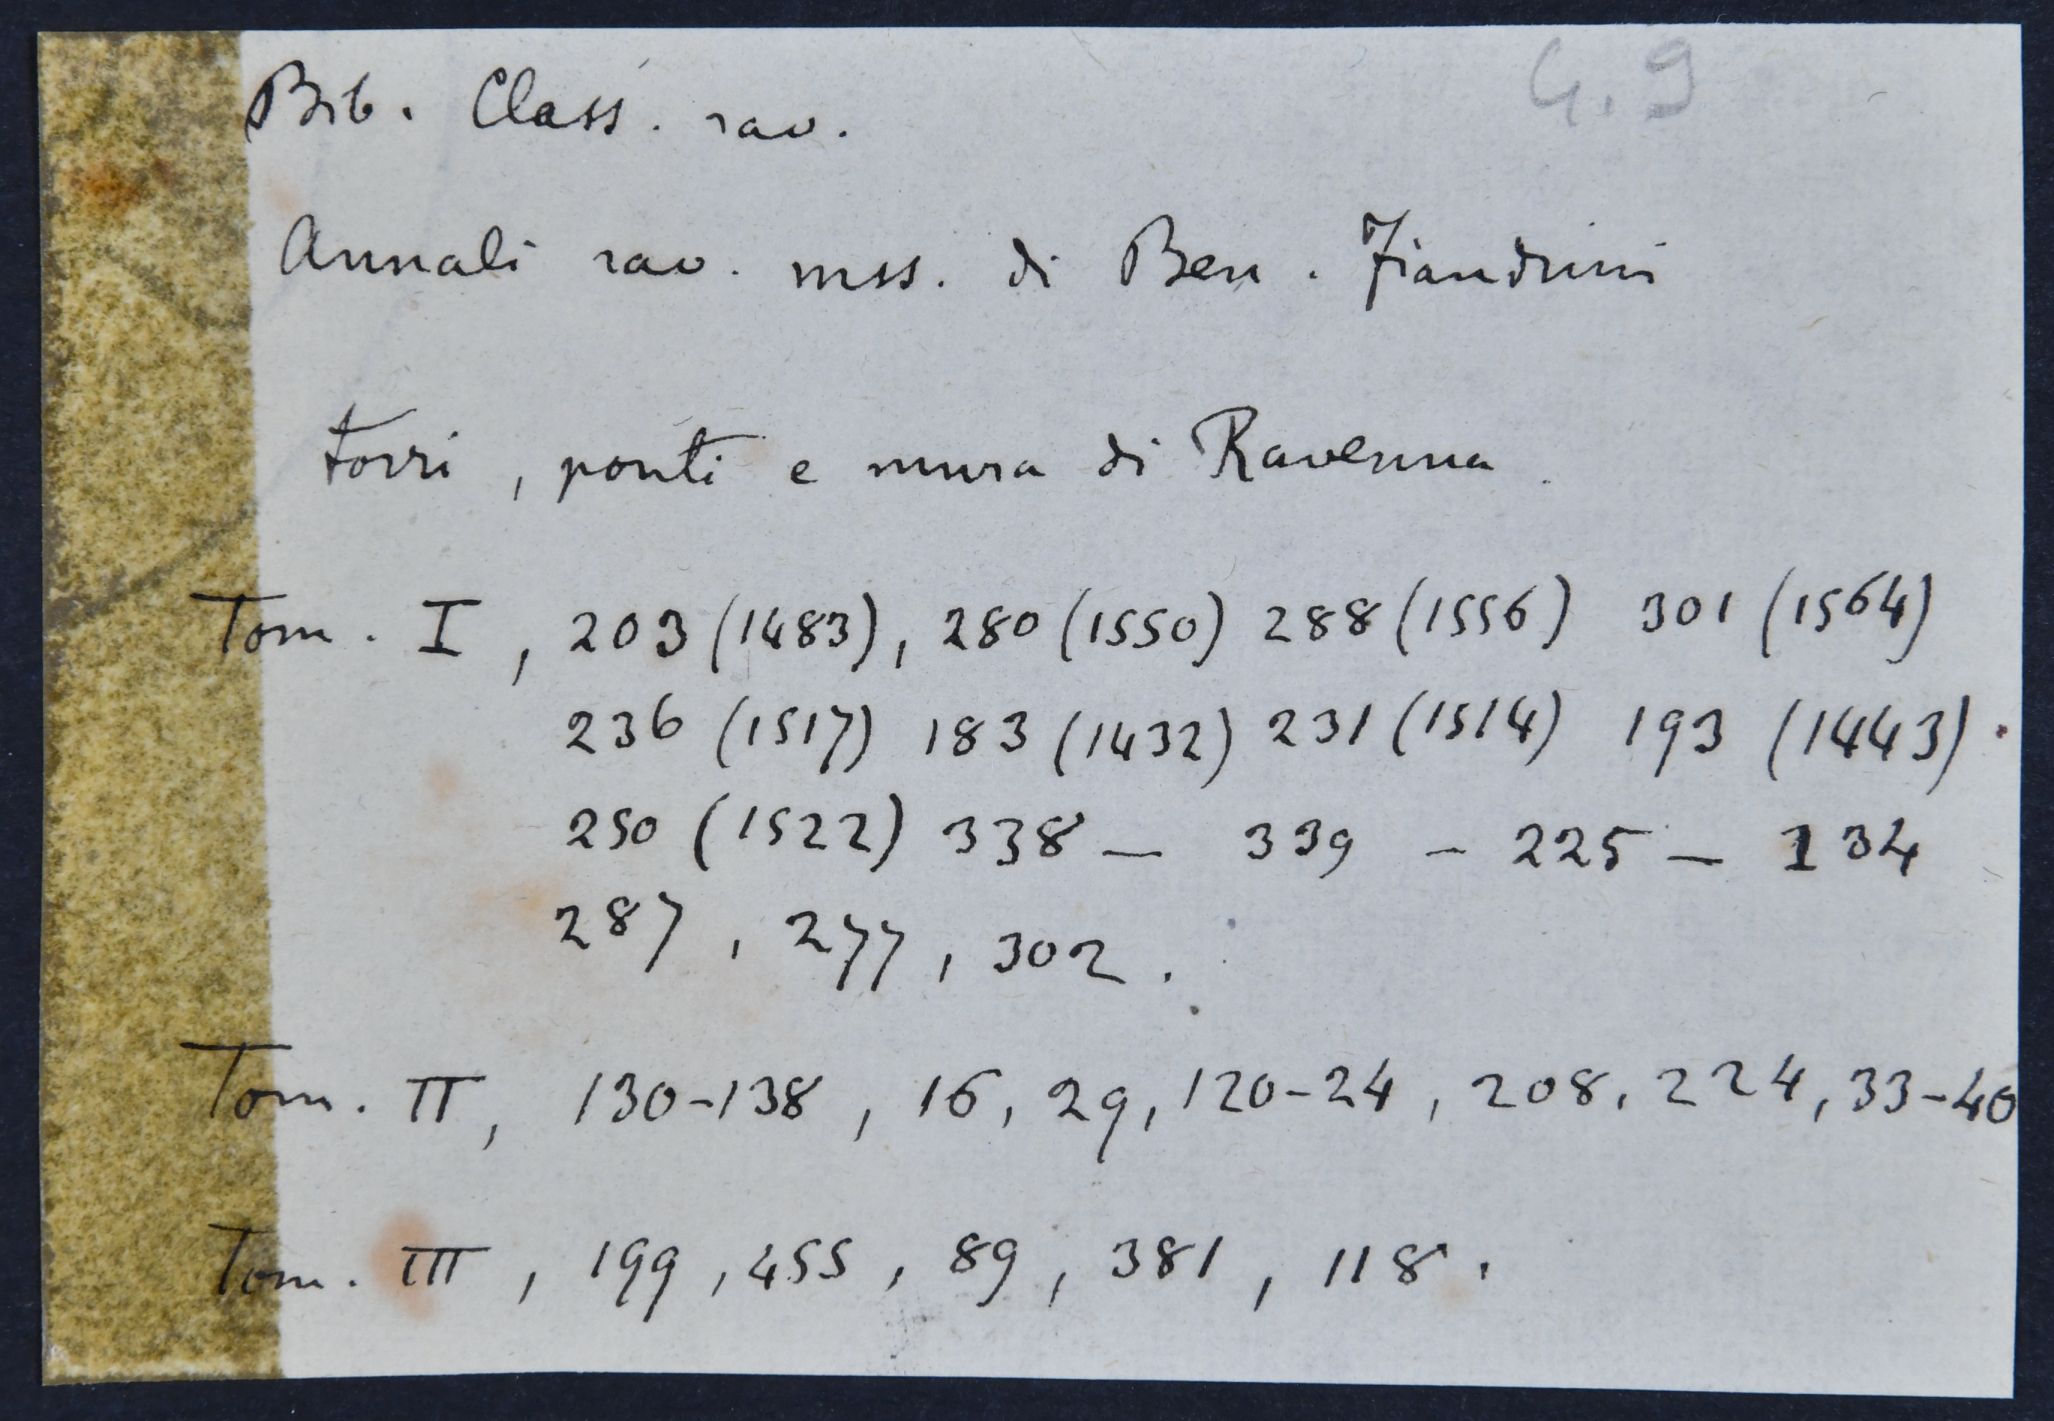 4.9
Bib. Class. rav.
Annali rav. mss. di Ben. Fiandrini
torri, ponti e mura di Ravenna.
Tom. I, 203 (1483), 280 (1550) 288 (1556) 301 (1564)
236 (1517) 183 (1432) 231 (1514) 193 (1443).
250 (1522) 338 - 339 - 225 - 134
287, 277, 302.
Tom. II, 130-138, 16, 29, 120-24, 208, 224, 33-40
Tom. III, 199, 455, 89, 381, 118.